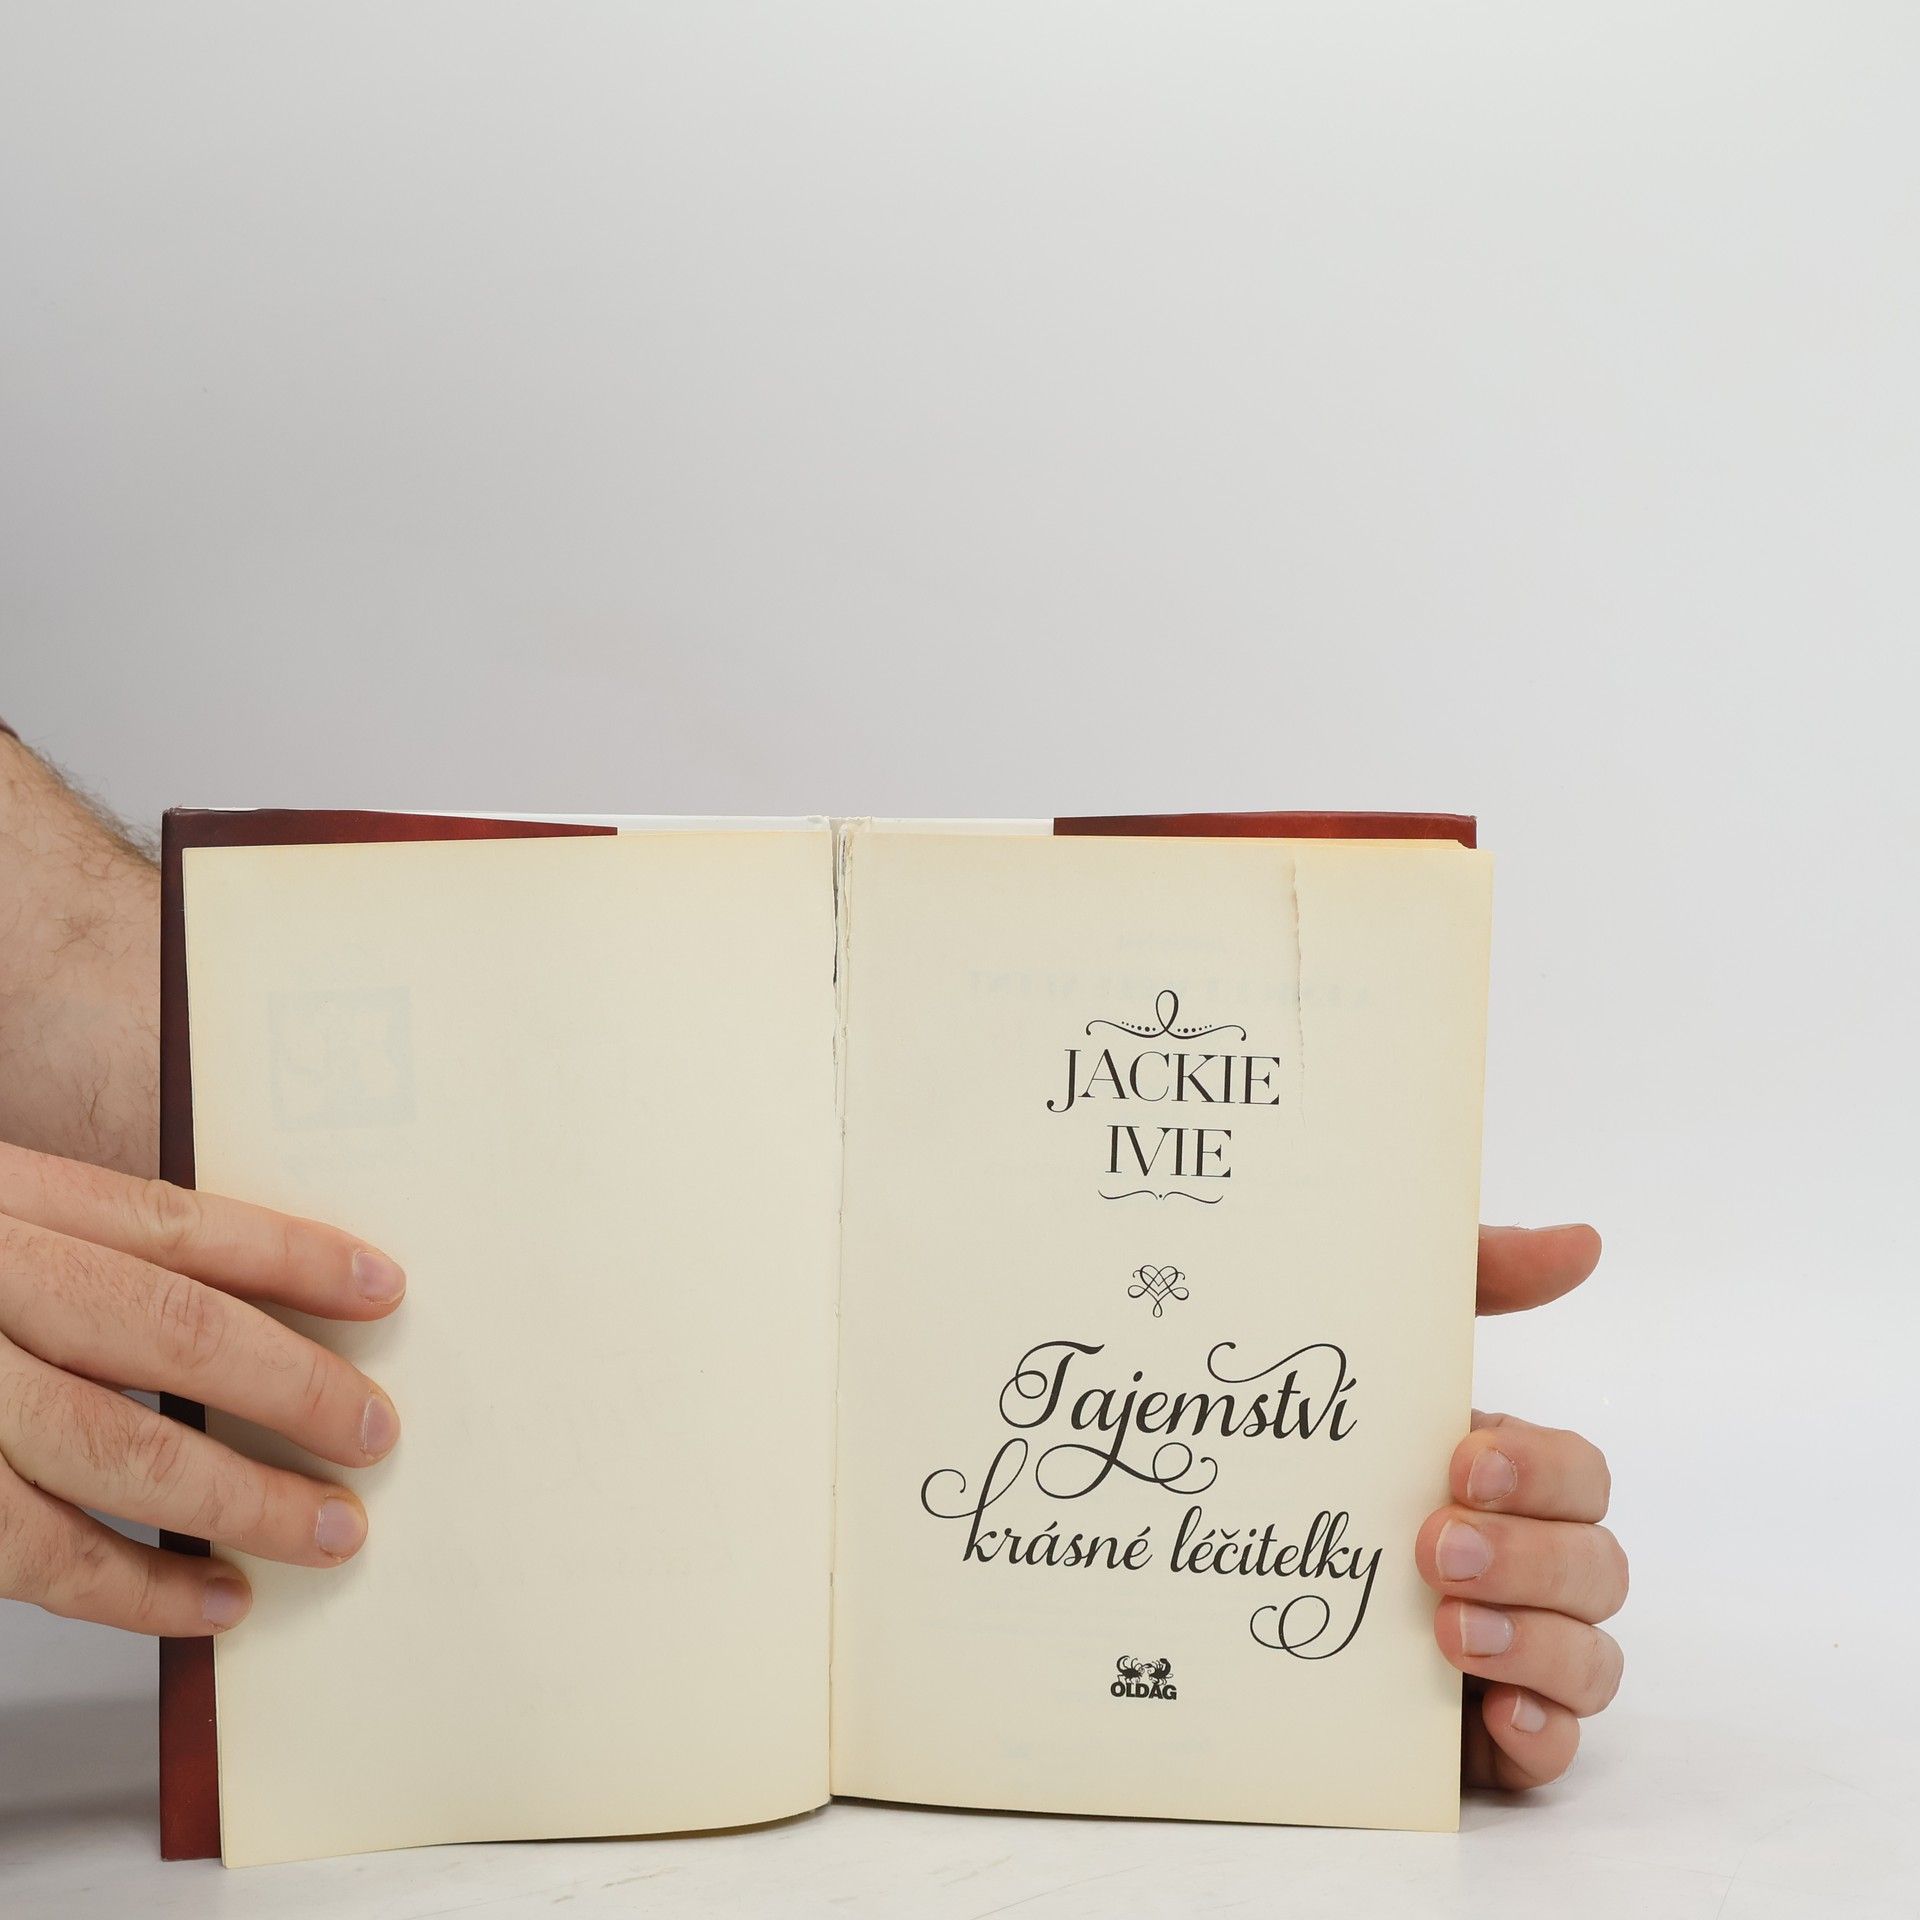 JACKIE
IVIE
Tajemství
krásné léčitelky
OLDAG